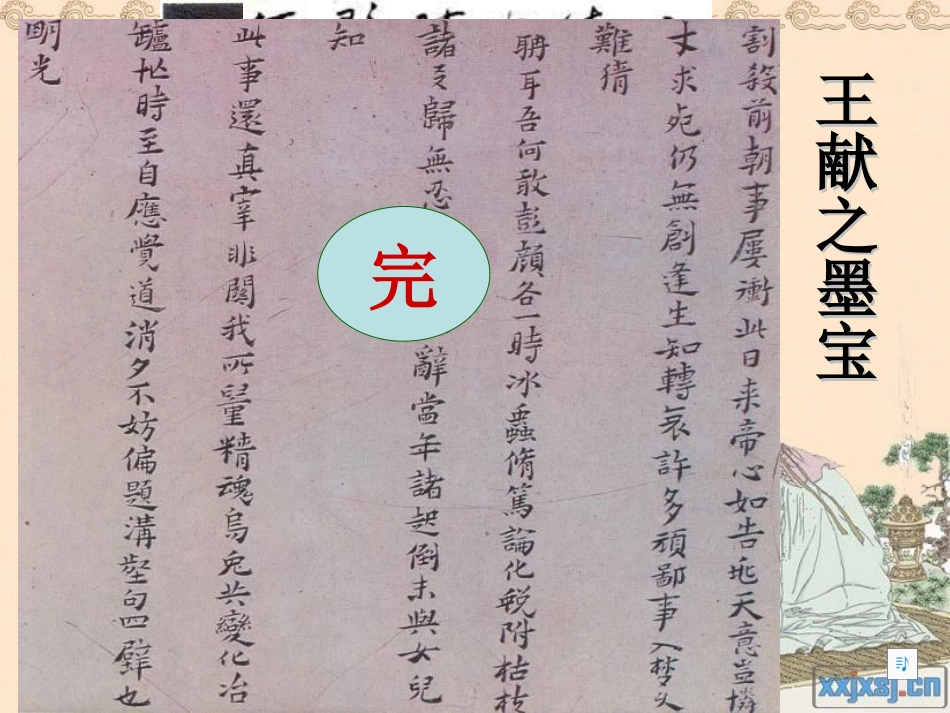 王献之墨宝
割殺前朝事屢衝此日来帝心如告兆天意豈憐
才求死仍無創逢生知轉哀許多頑鄙事入楚久
難猜
聃耳吾何敢彭顔各一時冰蟲脩篤論化蜕附枯枝
諸妄歸無
完
辭當年諸起倒未與女兒
知
此事還真宰非關我所量精魂烏兔共變化冶
鑪忙時至自應覺道消夕不妨偏題溝壑句四壁也
明光
xxjxsj.cn